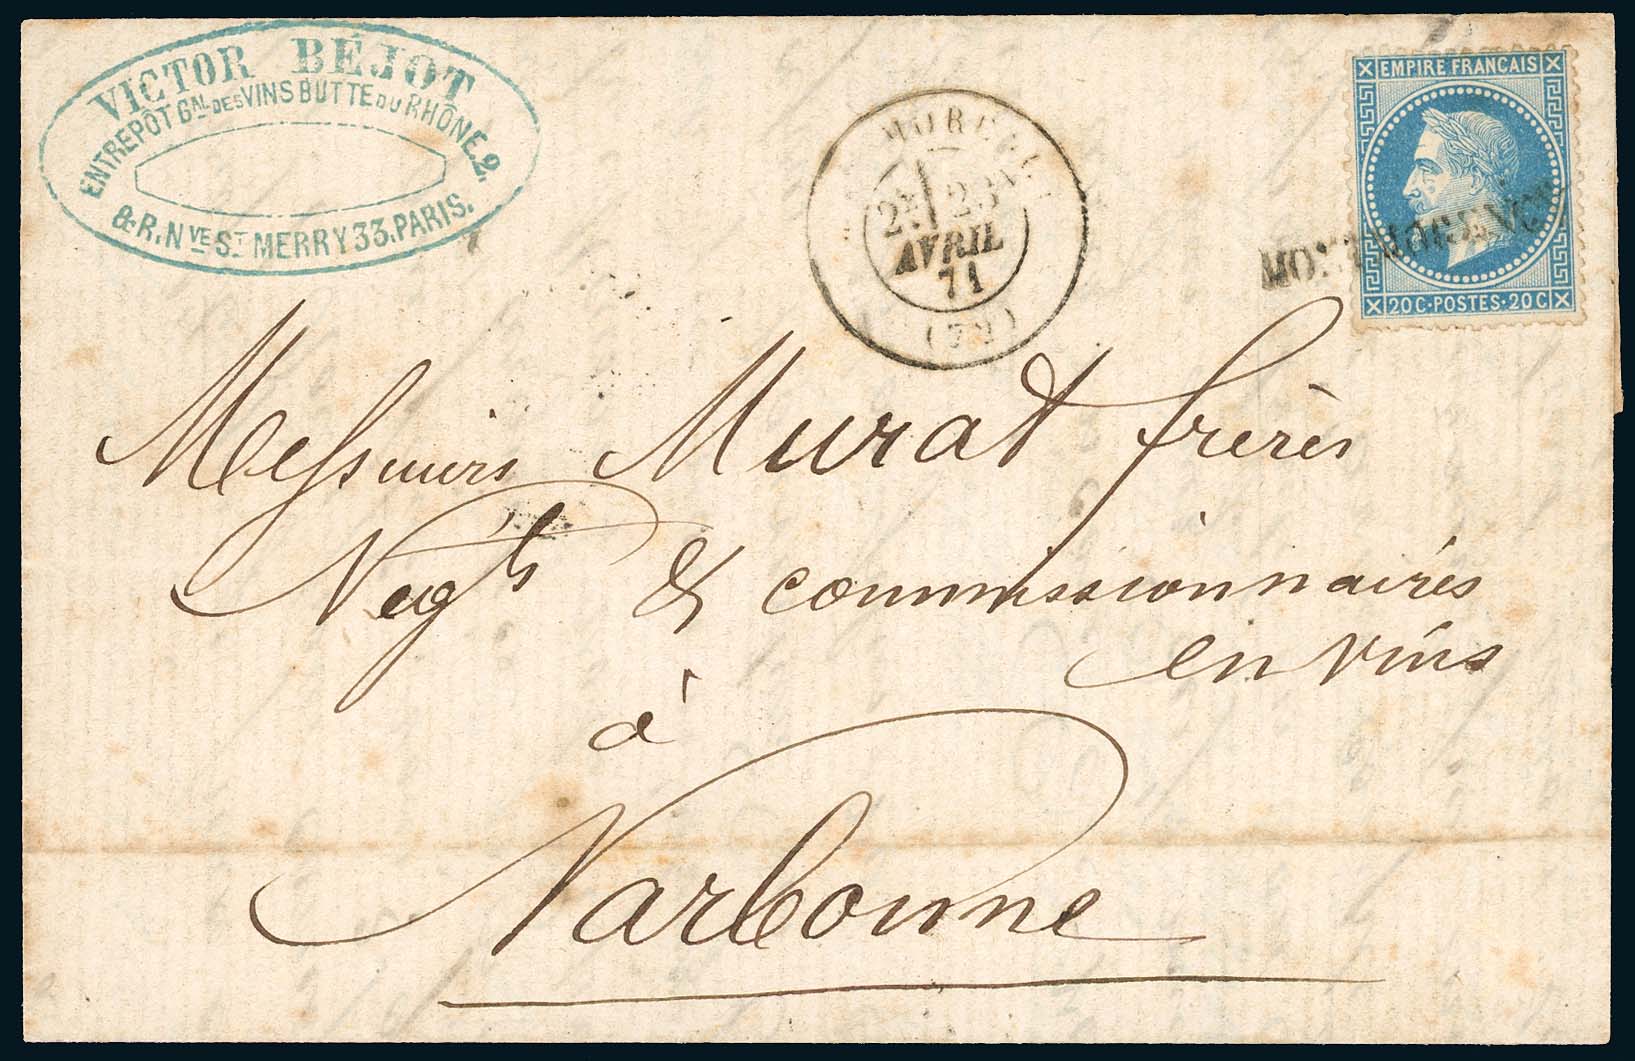 VICTOR BÉJOT
ENTREPÔT GAL DES VINS BUTTE DU RHÔNE. 2.
& R. NVE ST MERRY 33. PARIS.
23
AVRIL
71
EMPIRE FRANÇAIS
20 C · POSTES · 20 C
Messieurs Murat frères
Negts & commissionnaires
en vins
à
Narbonne